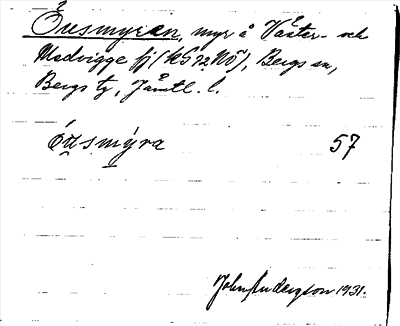 Öusmyran, myr å Väster- och
Medvigge fj (kS 72 NÖ), Bergs sn,
Bergs tg, Jämtl. l.
óusmýra 57
John Anderson 1931.